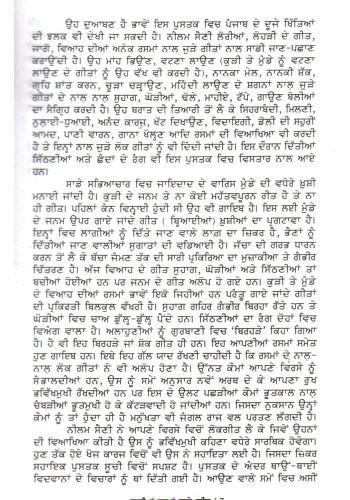 ਉਹ ਦੁਆਬਣ ਹੈ ਭਾਵੇਂ ਇਸ ਪੁਸਤਕ ਵਿਚ ਪੰਜਾਬ ਦੇ ਦੂਜੇ ਖਿੱਤਿਆਂ
ਦੀ ਝਲਕ ਵੀ ਦੇਖੀ ਜਾ ਸਕਦੀ ਹੈ। ਨੀਲਮ ਸੈਣੀ ਲੋਰੀਆਂ, ਲੋਹੜੀ ਦੇ ਗੀਤ,
ਜਾਗੋ, ਵਿਆਹ ਦੀਆਂ ਅਨੇਕ ਰਸਮਾਂ ਨਾਲ ਜੁੜੇ ਗੀਤਾਂ ਨਾਲ ਸਾਡੀ ਜਾਣ-ਪਛਾਣ
ਕਰਾਉਂਦੀ ਹੈ। ਉਹ ਮਾਂਹ ਭਿਉਂਣ, ਵਟਣਾ ਲਾਉਣ (ਕੁੜੀ ਤੇ ਮੁੰਡੇ ਨੂੰ ਵਟਣਾ
ਲਾਉਣ ਦੇ ਗੀਤਾਂ ਨੂੰ ਉਹ ਵੱਖ ਵੀ ਕਰਦੀ ਹੈ), ਨਾਨਕਾ ਮੇਲ, ਨਾਨਕੀ ਸ਼ੱਕ,
ਗ੍ਰਹਿ ਸ਼ਾਂਤ ਕਰਨ, ਚੂੜਾ ਚੜ੍ਹਾਉਣ, ਮਹਿੰਦੀ ਲਾਉਣ ਦੇ ਸ਼ਗਨਾਂ ਨਾਲ ਜੁੜੇ
ਗੀਤਾਂ ਦੇ ਨਾਲ ਨਾਲ ਸੁਹਾਗ, ਘੋੜੀਆਂ, ਢੋਲੇ, ਮਾਹੀਏ, ਟੱਪੇ, ਗਾਉਣ ਬੋਲੀਆਂ
ਦਾ ਸੰਗ੍ਰਿਹ ਕਰਦੀ ਹੈ। ਉਹ ਬਰਾਤ ਦੀ ਤਿਆਰੀ ਤੋਂ ਲੈ ਕੇ ਸਿਹਰਾਬੰਦੀ, ਮਿਲਣੀ,
ਨੁਲਾਈ-ਧੁਆਈ, ਅਨੰਦ ਕਾਰਜ, ਖੱਟ ਦਿਖਾਉਣ, ਵਿਦਾਇਗੀ, ਡੋਲੀ ਦੀ ਸਹੁਰੀਂ
ਆਮਦ, ਪਾਣੀ ਵਾਰਨ, ਗਾਨਾ ਖੋਲ੍ਹਣ ਆਦਿ ਰਸਮਾਂ ਦੀ ਵਿਆਖਿਆ ਵੀ ਕਰਦੀ
ਹੈ ਤੇ ਇਨ੍ਹਾਂ ਨਾਲ ਜੁੜੇ ਲੋਕ ਗੀਤਾਂ ਨੂੰ ਵੀ ਦਿੰਦੀ ਜਾਂਦੀ ਹੈ। ਇਸ ਦੌਰਾਨ ਦਿੱਤੀਆਂ
ਸਿੱਠਣੀਆਂ ਅਤੇ ਛੰਦਾਂ ਦੇ ਰੰਗ ਵੀ ਇਸ ਪੁਸਤਕ ਵਿਚ ਵਿਸਤਾਰ ਨਾਲ ਆਏ
ਹਨ।
ਸਾਡੇ ਸਭਿਆਚਾਰ ਵਿਚ ਜਾਇਦਾਦ ਦੇ ਵਾਰਿਸ ਮੁੰਡੇ ਦੀ ਵਧੇਰੇ ਖ਼ੁਸ਼ੀ
ਮਨਾਈ ਜਾਂਦੀ ਹੈ। ਕੁੜੀ ਦੇ ਜਨਮ ਤੇ ਨਾ ਕੋਈ ਮਹੱਤਵਪੂਰਨ ਰੀਤ ਹੈ ਤੇ ਨਾ
ਹੀ ਗੀਤ। ਪਹਿਲਾਂ ਕੰਨ ਵਿਨ੍ਹਾਈ ਹੁੰਦੀ ਸੀ ਉਹ ਵੀ ਗਾਇਬ ਹੈ। ਇਸ ਲਈ ਮੁੰਡੇ
ਦੇ ਜਨਮ ਉਪਰ ਗਾਏ ਜਾਂਦੇ ਗੀਤ ( ਬ੍ਰਿਆਈਆਂ) ਖ਼ੁਸ਼ੀਆਂ ਦਾ ਪ੍ਰਗਟਾਵਾ ਹੈ।
ਇਨ੍ਹਾਂ ਵਿਚ ਲਾਗੀਆਂ ਨੂੰ ਦਿੱਤੇ ਜਾਣ ਵਾਲੇ ਲਾਗ ਦਾ ਜ਼ਿਕਰ ਹੈ, ਭੈਣਾਂ ਨੂੰ
ਦਿੱਤੀਆਂ ਜਾਣ ਵਾਲੀਆਂ ਸੁਗਾਤਾਂ ਦੀ ਵਡਿਆਈ ਹੈ। ਜੱਚਾ ਦੀ ਗਰਭ ਧਾਰਨ
ਕਰਨ ਤੋਂ ਲੈ ਕੇ ਬੱਚਾ ਜੰਮਣ ਤੱਕ ਦੀ ਸਾਰੀ ਪ੍ਰਕਿਰਿਆ ਦਾ ਮੁਜ਼ਾਕੀਆ ਤੇ ਗੰਭੀਰ
ਚਿੱਤਰਣ ਹੈ। ਅੱਜ ਵਿਆਹ ਦੇ ਗੀਤ ਸੁਹਾਗ, ਘੋੜੀਆਂ ਅਤੇ ਸਿੱਠਣੀਆਂ ਤਾਂ
ਬਚੀਆਂ ਹੋਈਆਂ ਹਨ ਪਰ ਜਨਮ ਦੇ ਗੀਤ ਅਲੋਪ ਹੋ ਗਏ ਹਨ। ਕੁੜੀ ਤੇ ਮੁੰਡੇ
ਦੇ ਵਿਆਹ ਦੀਆਂ ਰਸਮਾਂ ਭਾਵੇਂ ਇਕੋ ਜਿਹੀਆਂ ਹਨ ਪਰੰਤੂ ਗਾਏ ਜਾਂਦੇ ਗੀਤਾਂ
ਦੀ ਪ੍ਰਕਿਰਤੀ ਬਿਲਕੁਲ ਵੱਖਰੀ ਹੈ। ਸੁਹਾਗ ਗਹਿਰ ਗੰਭੀਰ ਬਿਰਹਾ ਰੱਤੇ ਹਨ ਤੇ
ਘੋੜੀਆਂ ਵਿਚ ਚਾਅ ਡੁੱਲ੍ਹ-ਡੁੱਲ੍ਹ ਪੈਂਦੇ ਹਨ। ਸਿੱਠਣੀਆਂ ਦਾ ਰੰਗ ਦੋਹਾਂ ਵਿਚ
ਵਿਅੰਗ ਵਾਲਾ ਹੈ। ਅਲਾਹੁਣੀਆਂ ਨੂੰ ਗੁਰਬਾਣੀ ਵਿਚ 'ਬਿਰਹੜੇ' ਕਿਹਾ ਗਿਆ
ਹੈ। ਹੈ ਵੀ ਇਹ ਬਿਰਹੜੇ ਜਾਂ ਸ਼ੋਕ ਗੀਤ ਹੀ ਹਨ। ਇਹ ਆਪਣੀਆਂ ਰਸਮਾਂ ਸਮੇਤ
ਹੁਣ ਗਾਇਬ ਹਨ। ਇਥੇ ਇਹ ਗੱਲ ਯਾਦ ਰੱਖਣੀ ਚਾਹੀਦੀ ਹੈ ਕਿ ਰਸਮਾਂ ਦੇ ਨਾਲ-
ਨਾਲ ਲੋਕ ਗੀਤਾਂ ਨੇ ਵੀ ਅਲੋਪ ਹੋਣਾ ਹੈ। ਉੱਨਤ ਕੌਮਾਂ ਆਪਣੇ ਵਿਰਸੇ ਨੂੰ
ਸੰਭਾਲਦੀਆਂ ਹਨ, ਉਸ ਨੂੰ ਸਮੇਂ ਅਨੁਸਾਰ ਨਵੇਂ ਅਰਥ ਦੇ ਕੇ ਆਪਣਾ ਰੁਖ
ਭਵਿੱਖਮੁਖੀ ਰੱਖਦੀਆਂ ਹਨ ਪਰ ਇਸ ਦੇ ਉਲਟ ਪਛੜੀਆਂ ਕੌਮਾਂ ਭੂਤਕਾਲ ਨਾਲ
ਚੰਬੜੀਆਂ ਭੂਤਮੁਖੀ ਹੋ ਕੇ ਕੱਟੜਵਾਦੀ ਹੋ ਜਾਂਦੀਆਂ ਹਨ। ਜਿਸਦਾ ਨੁਕਸਾਨ ਉਨ੍ਹਾਂ
ਕੌਮਾਂ ਨੂੰ ਤਾਂ ਹੁੰਦਾ ਹੀ ਹੈ ਮਨੁੱਖਤਾ ਵੀ ਜੰਗਲ ਰਾਜ ਵਲ ਪਰਤਣ ਲੱਗਦੀ ਹੈ।
ਨੀਲਮ ਸੈਣੀ ਨੇ ਆਪਣੇ ਵਿਰਸੇ ਵਿਚੋਂ ਲੋਕਗੀਤ ਲੈ ਕੇ ਜਿਵੇਂ ਉਹਨਾਂ
ਦੀ ਵਿਆਖਿਆ ਕੀਤੀ ਹੈ ਉਸ ਨੂੰ ਭਵਿੱਖਮੁਖੀ ਕਹਿਣਾ ਵਧੇਰੇ ਸਾਰਥਿਕ ਹੋਵੇਗਾ।
ਹੁਣ ਤੱਕ ਹੋਏ ਖੋਜ ਕਾਰਜ ਵਿਚੋਂ ਵੀ ਉਸ ਨੇ ਸਹਾਇਤਾ ਲਈ ਹੈ। ਜਿਸਦਾ ਜ਼ਿਕਰ
ਸਹਾਇਕ ਪੁਸਤਕ ਸੂਚੀ ਵਿਚੋਂ ਸਪਸ਼ਟ ਹੈ। ਪੁਸਤਕ ਦੇ ਅੰਦਰ ਥਾਉਂ-ਥਾਈਂ
ਵਿਦਵਾਨਾਂ ਦੇ ਵਿਚਾਰਾਂ ਨੂੰ ਥਾਂ ਦਿੱਤੀ ਗਈ ਹੈ। ਆਉਣ ਵਾਲੇ ਸਮੇਂ ਵਿਚ ਅਸੀਂ